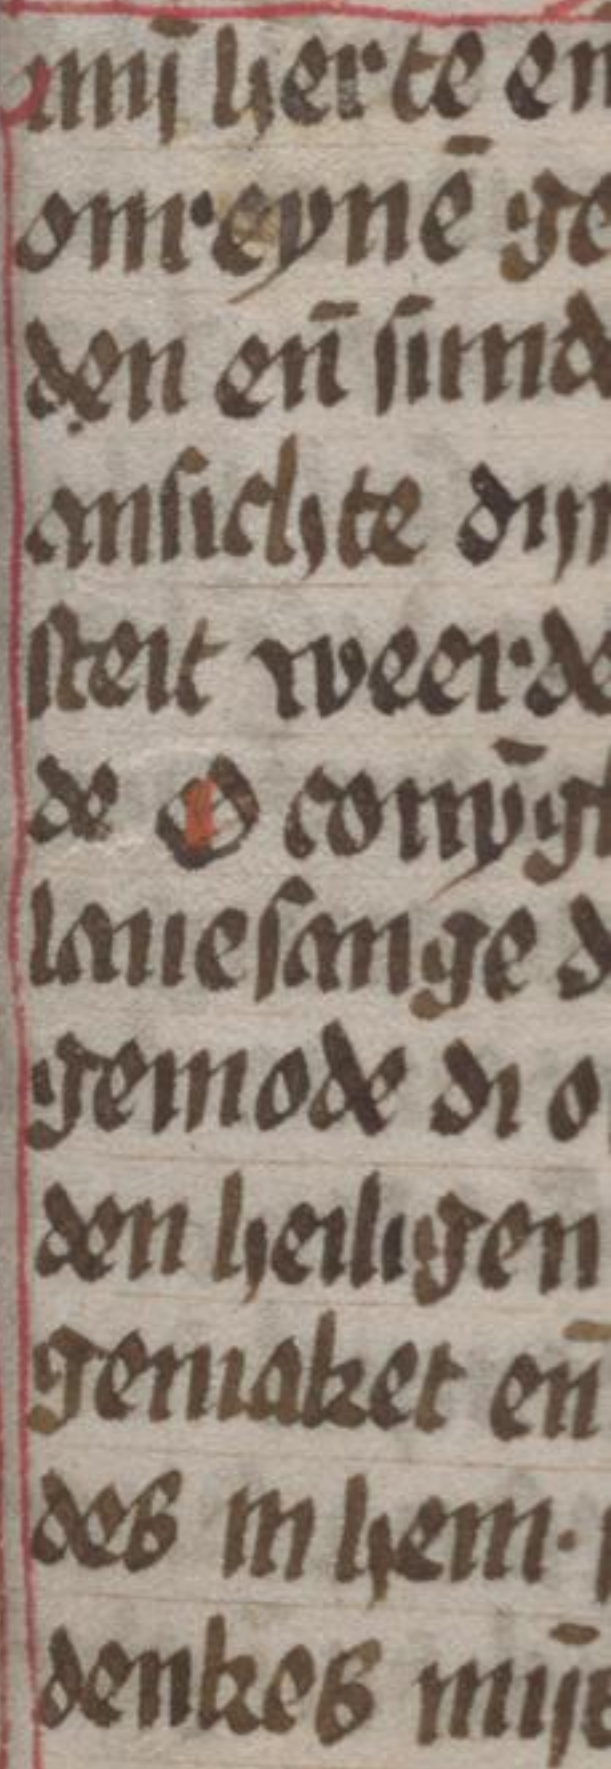 mij̄ herte en
onreynē ge
den en̄ sund
ansichte dyn
steit weerde
de O conȳg
lauesange d
gemode di o
den heiligen
gemaket en̄
des in hem·
denkes mij̄s